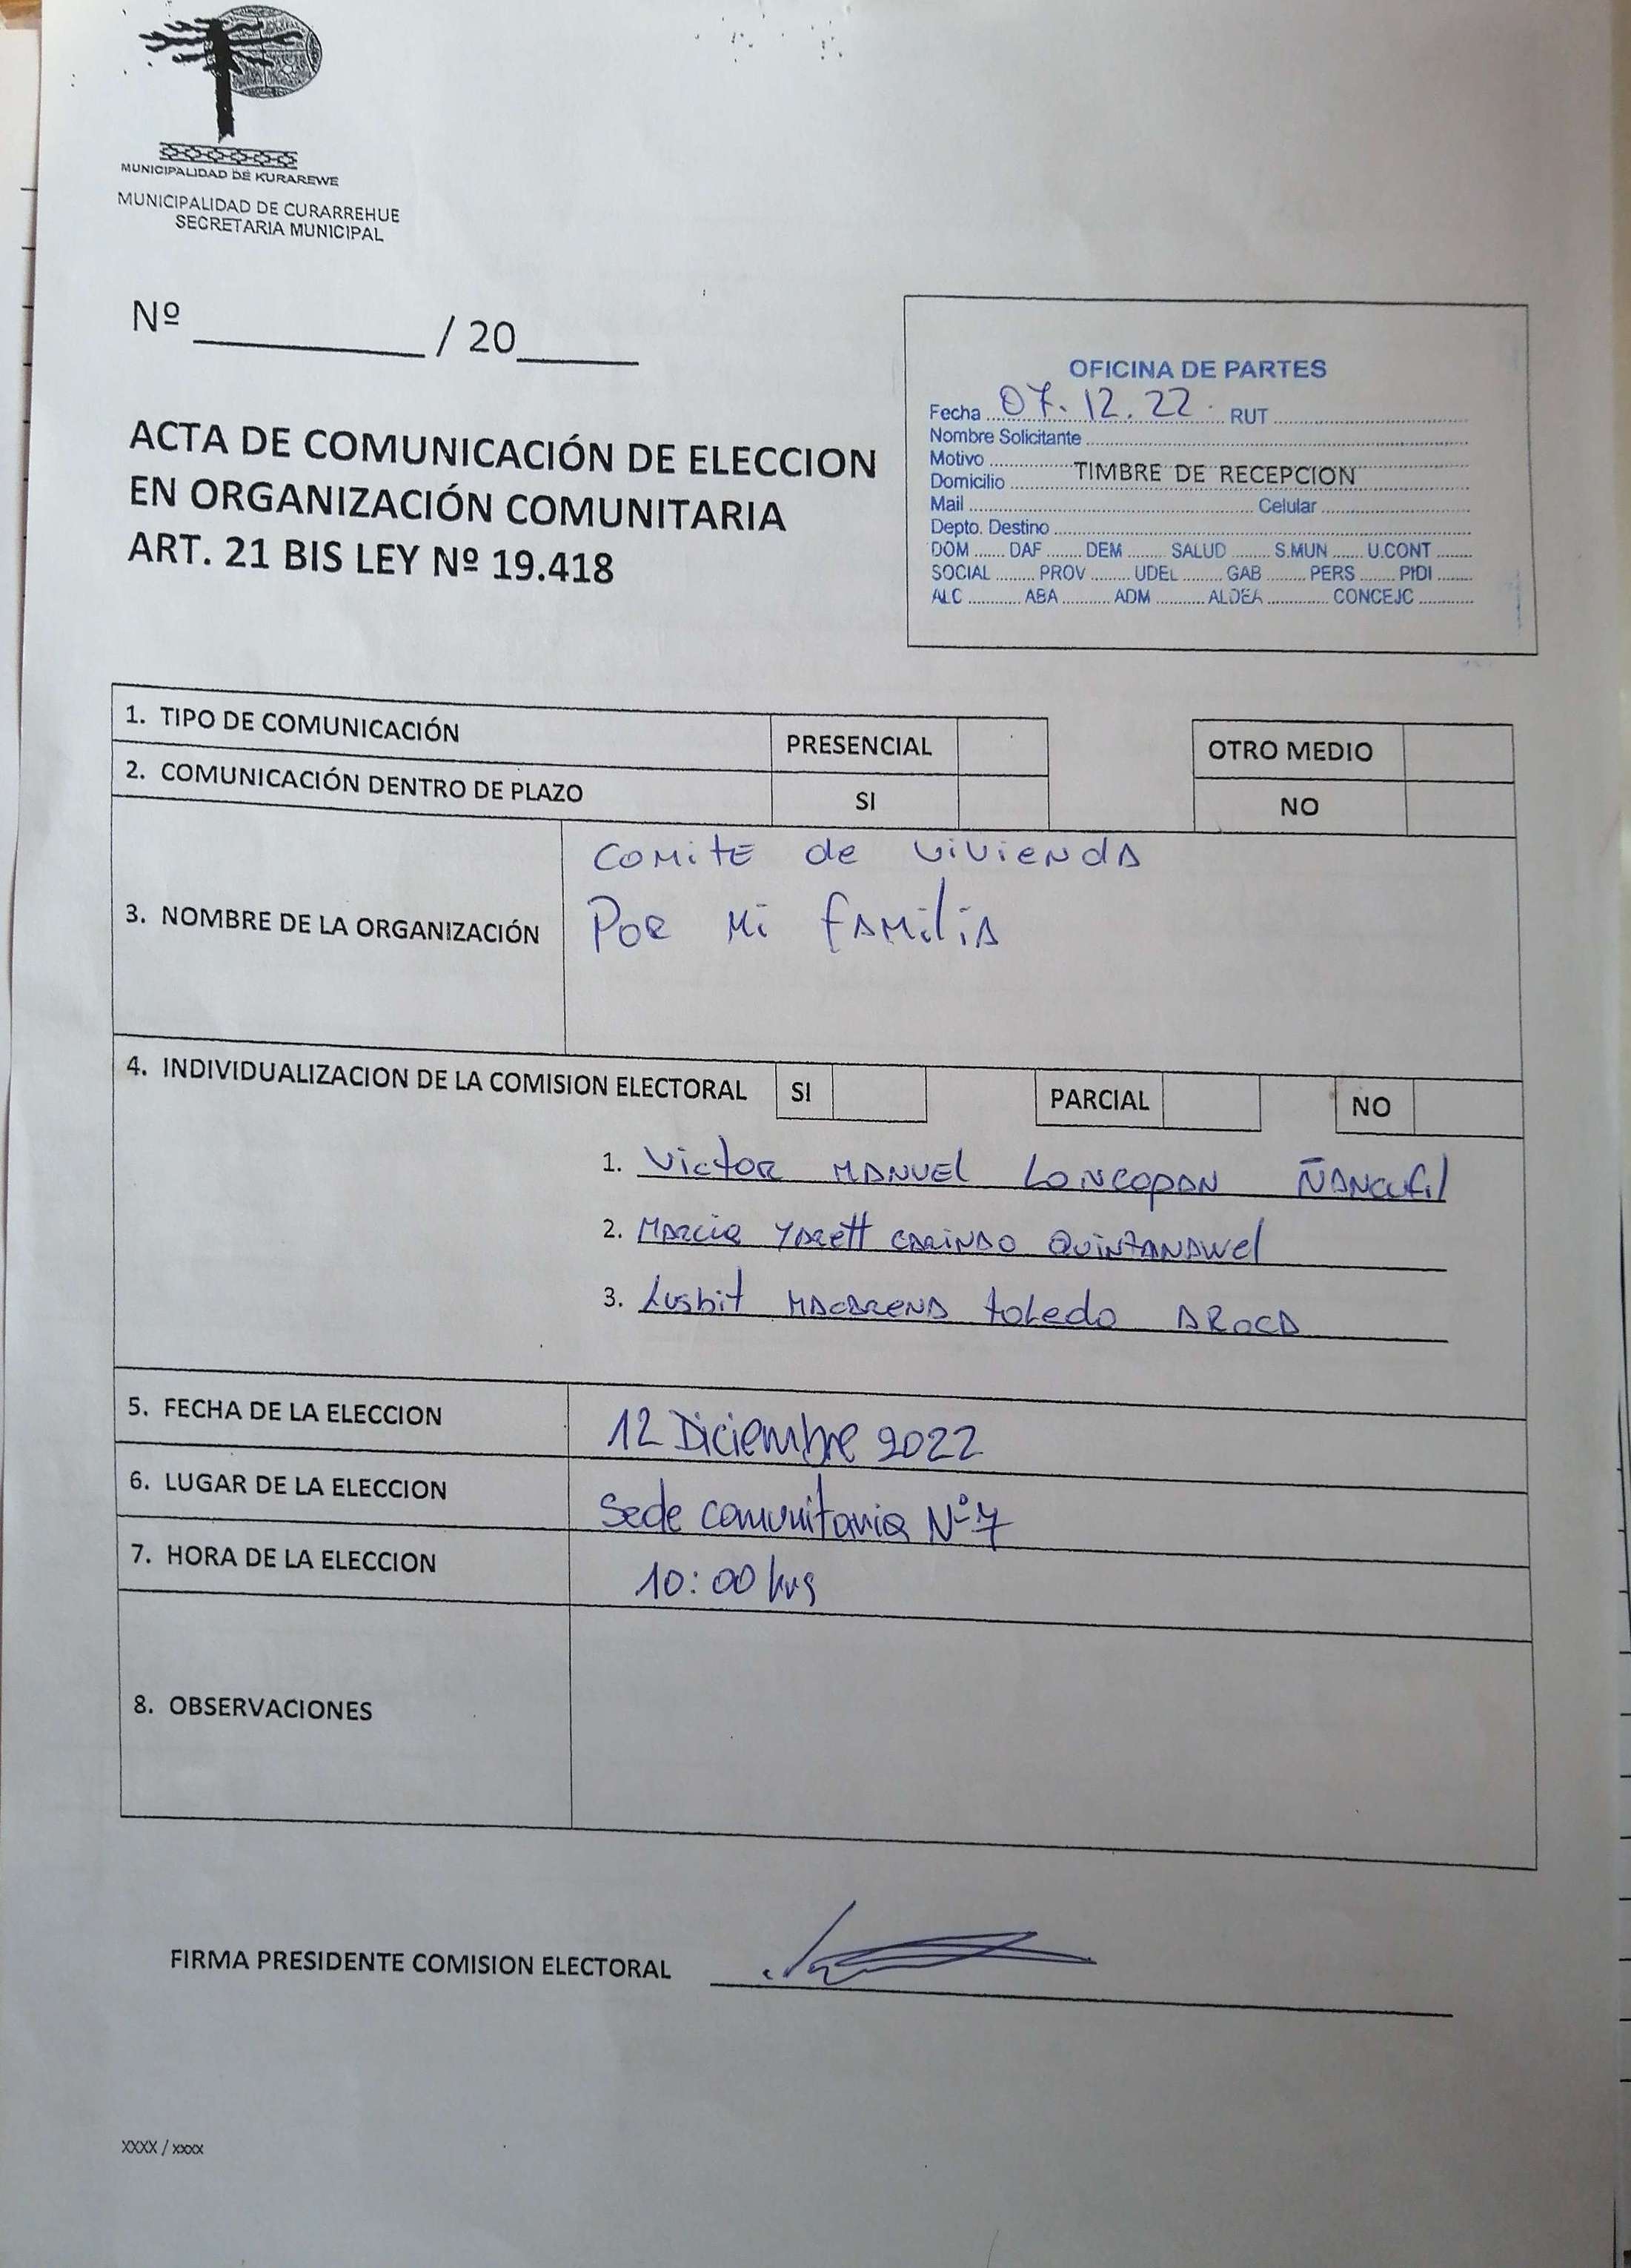 MUNICIPALIDAD DE KURAREWE
MUNICIPALIDAD DE CURARREHUE
SECRETARIA MUNICIPAL
Nº __________ / 20_____
ACTA DE COMUNICACIÓN DE ELECCION
EN ORGANIZACIÓN COMUNITARIA
ART. 21 BIS LEY Nº 19.418
OFICINA DE PARTES
Fecha 07.12.22. RUT
Nombre Solicitante
Motivo
TIMBRE DE RECEPCION
Domicilio
Mail Celular
Depto. Destino
DOM DAF DEM SALUD S.MUN U.CONT
SOCIAL PROV UDEL GAB PERS PIDI
ALC ABA ADM ALDEA CONCEJC
1. TIPO DE COMUNICACIÓN PRESENCIAL OTRO MEDIO
2. COMUNICACIÓN DENTRO DE PLAZO SI NO
3. NOMBRE DE LA ORGANIZACIÓN
Comite de vivienda
Por mi familia
4. INDIVIDUALIZACION DE LA COMISION ELECTORAL SI PARCIAL NO
1. Victor Manuel Loncopan Ñancufil
2. Marcia Yarett Carinao Quintanawel
3. Lusbit Macarena Toledo Aroca
5. FECHA DE LA ELECCION 12 Diciembre 2022
6. LUGAR DE LA ELECCION Sede comunitaria Nº7
7. HORA DE LA ELECCION 10:00 hrs
8. OBSERVACIONES
FIRMA PRESIDENTE COMISION ELECTORAL
XXXX / xxxx